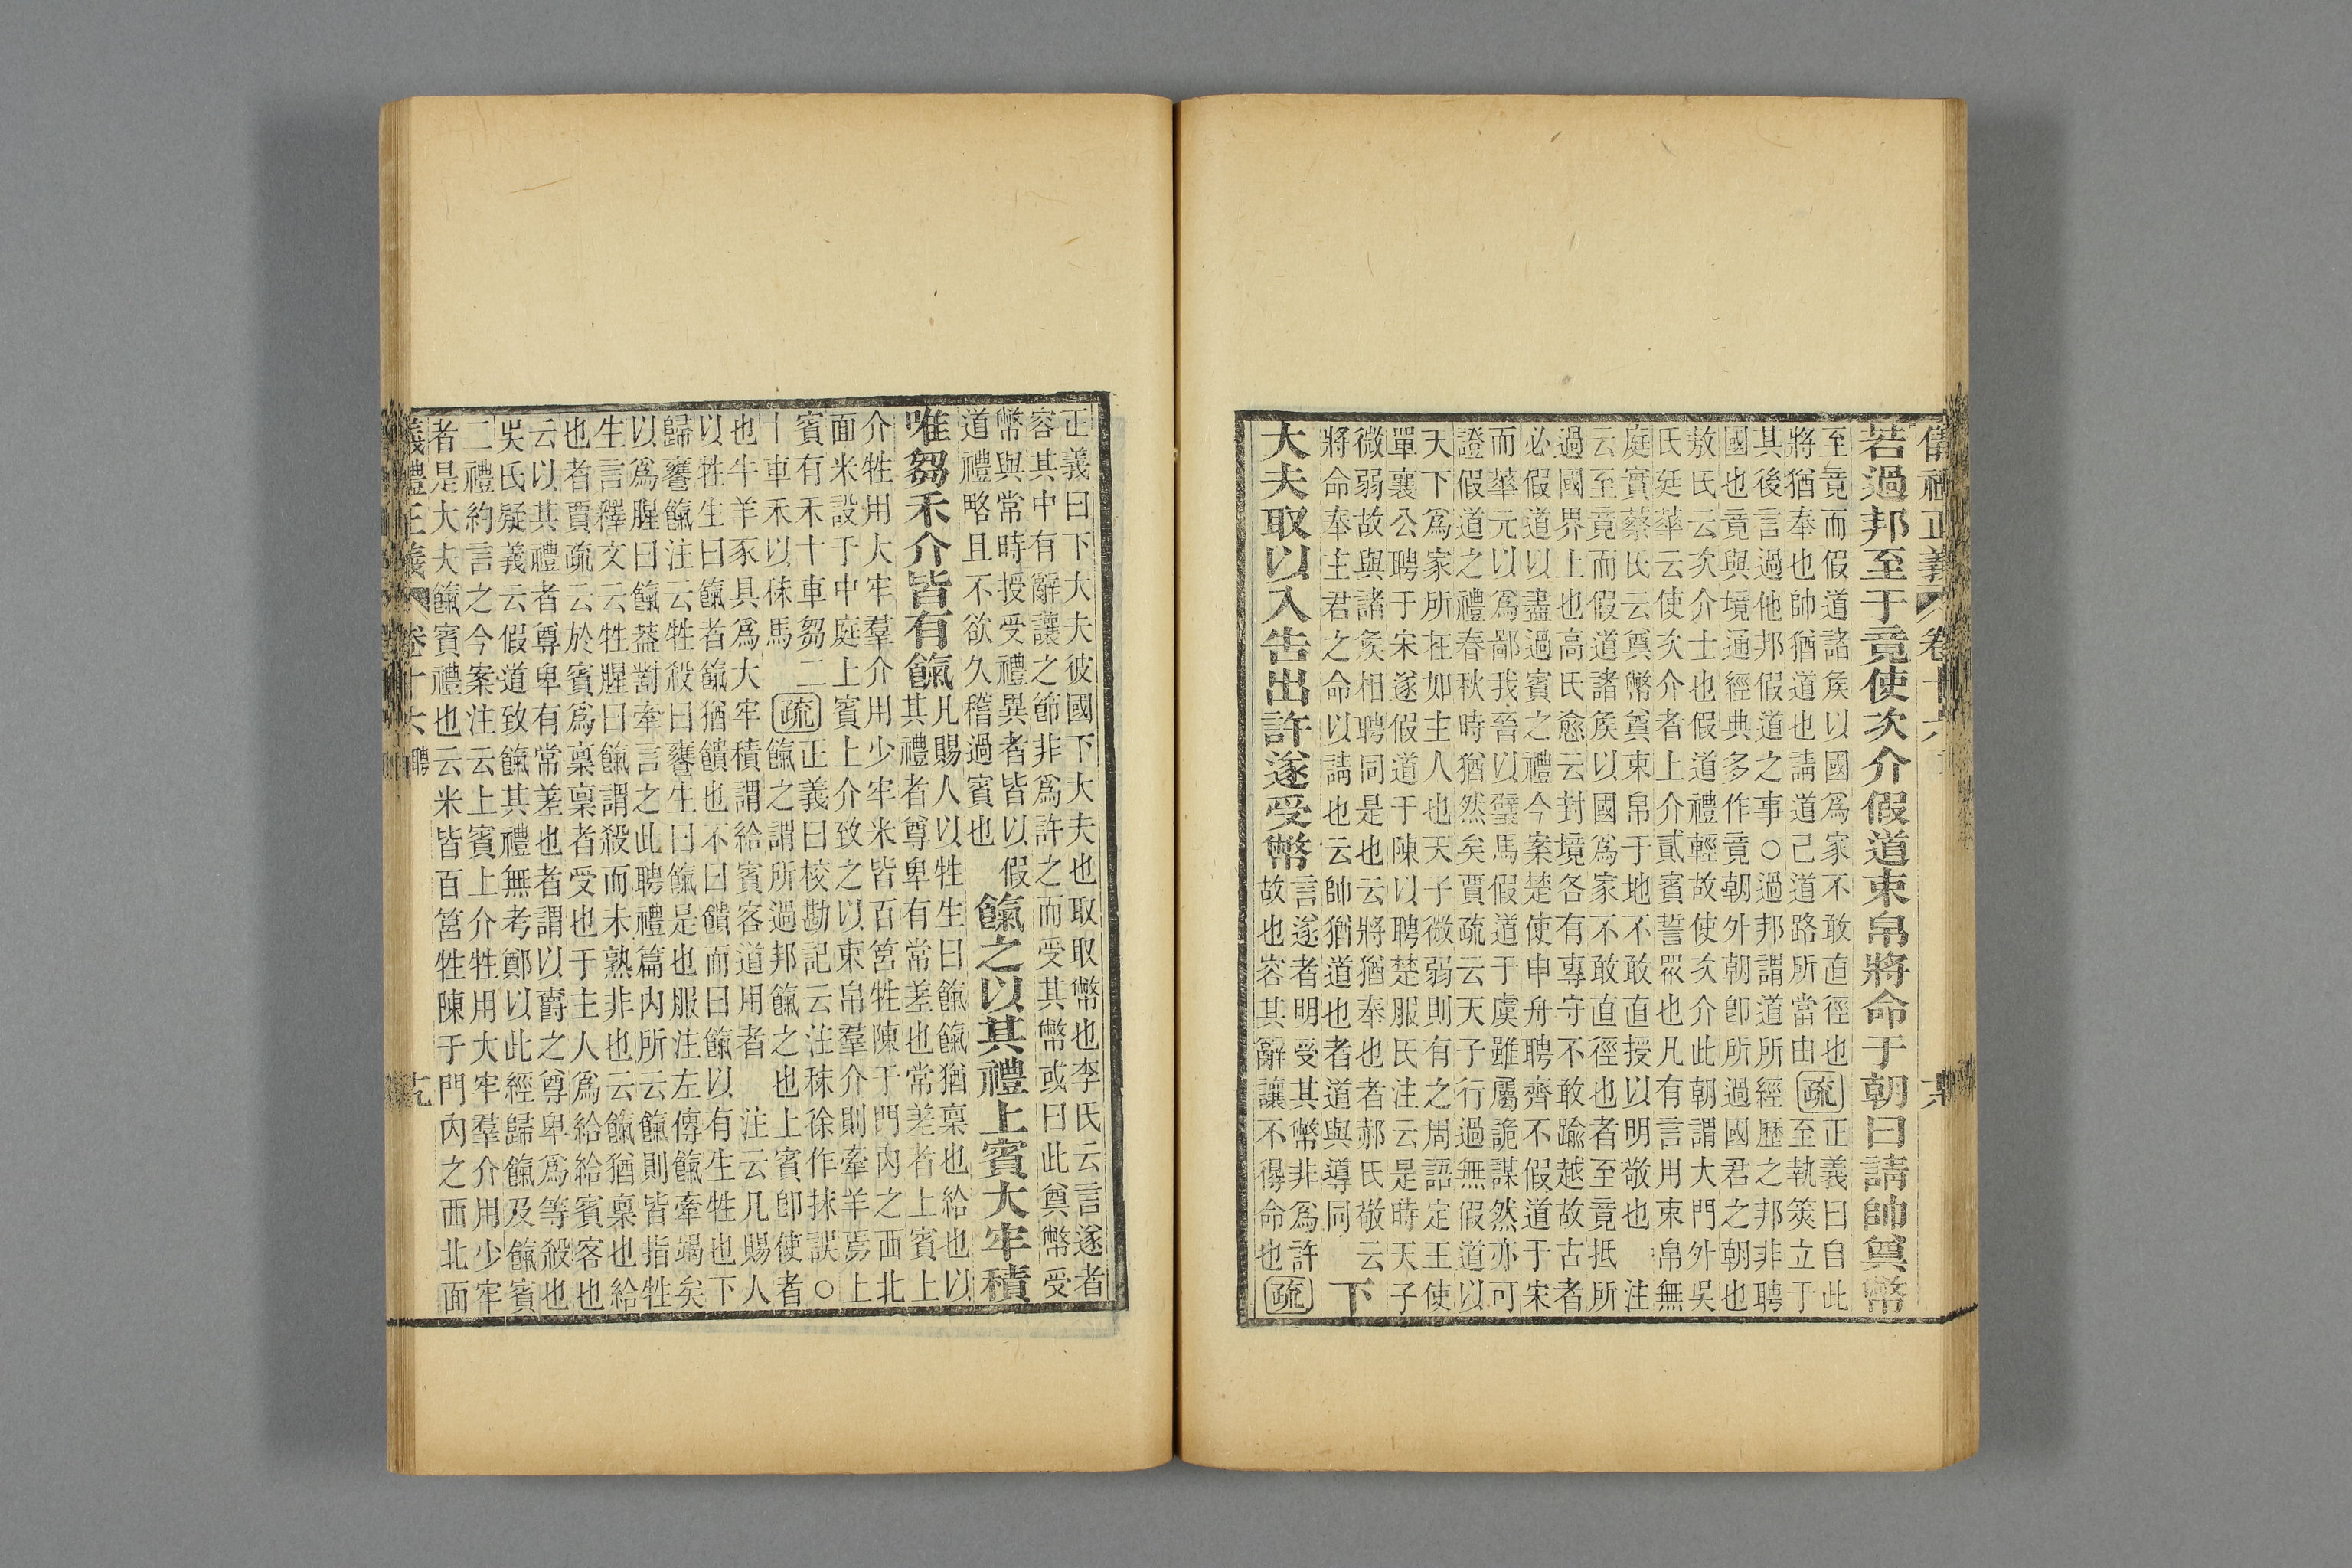 儀禮正義 卷十六 十八
若過邦至于竟使次介假道束帛將命于朝曰請帥奠幣
至竟而假道諸矦以國爲家不敢直徑也
將猶奉也帥猶道也請道己道路所當由
疏
正義曰自此
至執筴立于
其後言過他邦假道之事○過邦謂道所經歷之邦非聘
國也竟與境通經典多作竟朝外朝卽所過國君之朝也
敖氏云次介士也假道禮輕故使次介此朝謂大門外吳
氏廷華云使次介者上介貳賓誓眾也凡有言用束帛無
庭實蔡氏云奠幣奠束帛于地不敢直授以明敬也 注
云至竟而假道諸矦以國爲家不敢直徑也者至竟抵所
過國界上也高氏愈云封境各有專守不敢踰越故古者
必假道以盡過賓之禮今案楚使申舟聘齊不假道于宋
而華元以爲鄙我晉以璧馬假道于虞雖屬詭謀然亦可
證假道之禮春秋時猶然矣賈疏云天子行過無假道以
天下爲家所在如主人也天子微弱則有之周語定王使
單襄公聘于宋遂假道于陳以聘楚服氏注云是時天子
微弱故與諸矦相聘同是也云將猶奉也者郝氏敬云
將命奉主君之命以請也云帥猶道也者道與導同
下
大夫取以入告出許遂受幣
言遂者明受其幣非爲許
故也容其辭讓不得命也
疏
正義曰下大夫彼國下大夫也取取幣也李氏云言遂者
容其中有辭讓之節非爲許之而受其幣或曰此奠幣受
幣與常時授受禮異者皆以假
道禮略且不欲久稽過賓也
餼之以其禮上賓大牢積
唯芻禾介皆有餼
凡賜人以牲生曰餼餼猶稟也給也以
其禮者尊卑有常差也常差者上賓上
介牲用大牢羣介用少牢米皆百筥牲陳于門內之西北
面米設于中庭上賓上介致之以束帛羣介則牽羊焉上
賓有禾十車芻二
十車禾以秣馬
疏
正義曰校勘記云注秣徐作抹誤○
餼之謂所過邦餼之也上賓卽使者
也牛羊豕具爲大牢積謂給賓客道用者 注云凡賜人
以牲生曰餼者餼猶饋也不曰饋而曰餼以有生牲也下
歸饔餼注云牲殺曰饔生曰餼是也服注左傳餼牽竭矣
以爲腥曰餼蓋對牽言之此聘禮篇內所云餼則皆指牲
生言釋文云牲腥曰餼謂殺而未熟非也云餼猶稟也給
也者賈疏云於賓爲稟稟者受也于主人爲給給賓客也
云以其禮者尊卑有常差也者謂以爵之尊卑爲等殺也
吳氏疑義云假道致餼其禮無考鄭以此經歸餼及餼賓
二禮約言之今案注云上賓上介牲用大牢羣介用少牢
者是大夫餼賓禮也云米皆百筥牲陳于門內之西北面
義禮正義 卷十六 聘 十九